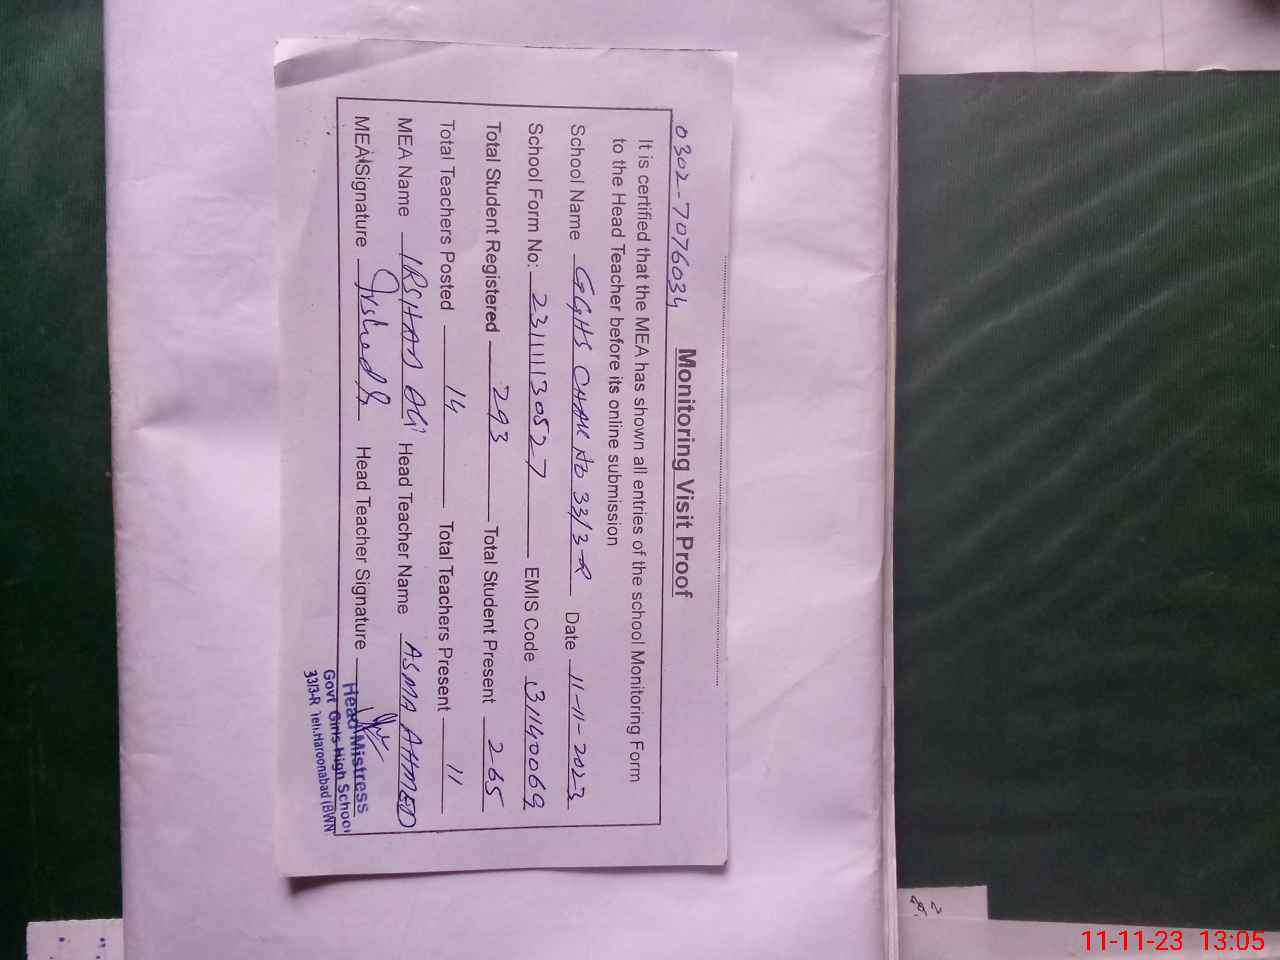 0302-7076034
Monitoring Visit Proof
It is certified that the MEA has shown all entries of the school Monitoring Form
to the Head Teacher before its online submission
School Name GGHS CHAK NO 33/3-R Date 11-11-2023
School Form No: 231111130527 EMIS Code 31140069
Total Student Registered 293 Total Student Present 265
Total Teachers Posted 14 Total Teachers Present 11
MEA Name IRSHAD ALI Head Teacher Name ASMA AHMED
MEA Signature Irshad Head Teacher Signature
Head Mistress
Govt Girls High School
33/3-R Teh.Haroonabad (BWN
11-11-23 13:05